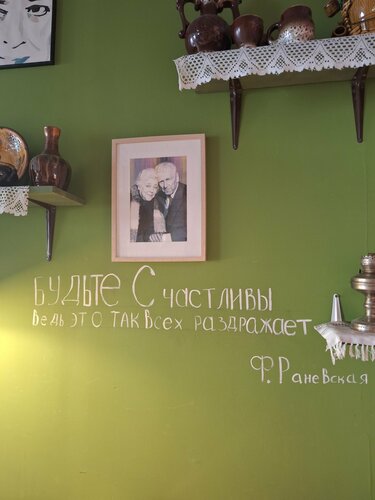 Будьте Счастливы
Ведь это так всех раздражает
Ф. Раневская